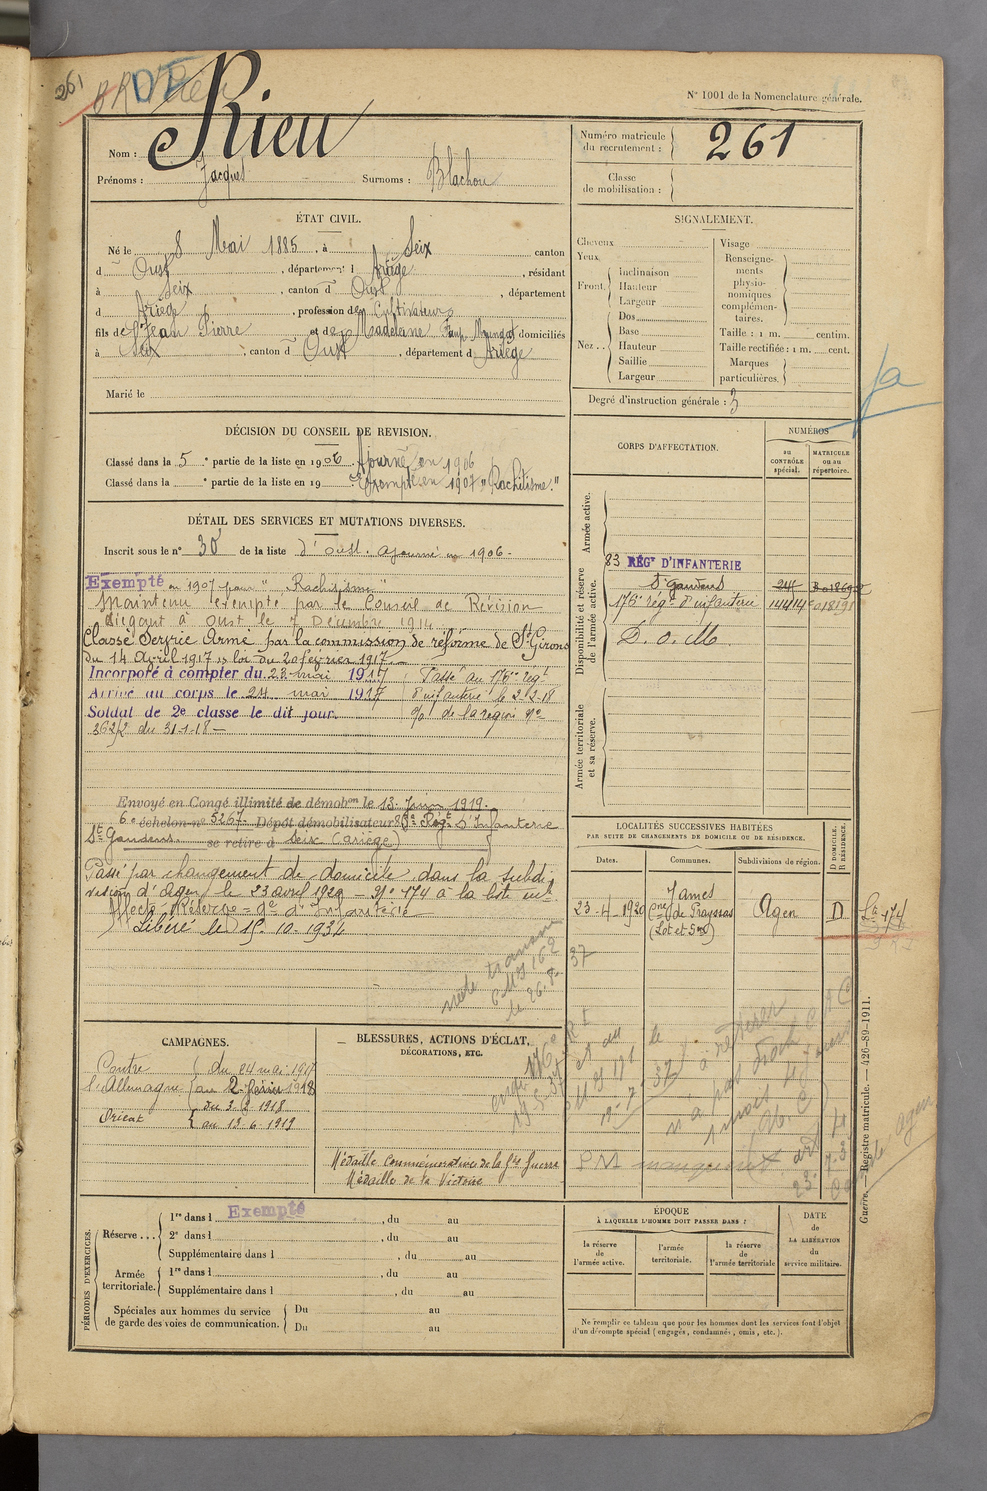 261
N° 1001 de la Nomenclature générale.
Nom : Rieu
Prénoms : Jacques Surnoms : Blachou
Numéro matricule du recrutement : 261
Classe de mobilisation :
ÉTAT CIVIL.
Né le 8 Mai 1885, à Seix canton
d Oust, département d Ariège, résidant
à Seix, canton d Oust, département
d Ariège, profession de Cultivateur
fils de Jean Pierre et de Madeleine domiciliés
à Seix, canton d Oust, département d Ariège
Marié le
SIGNALEMENT.
Cheveux
Yeux
Front. Inclinaison
Hauteur
Largeur
Nez.. Dos
Base
Hauteur
Saillie
Largeur
Visage
Renseignements physionomiques complémentaires.
Taille : 1 m. centim.
Taille rectifiée : 1 m. cent.
Marques particulières.
Degré d'instruction générale : 3
DÉCISION DU CONSEIL DE REVISION.
Classé dans la 5e partie de la liste en 1906. Ajourné en 1906
Classé dans la e partie de la liste en 19 Exempté en 1907 "Rachitisme."
DÉTAIL DES SERVICES ET MUTATIONS DIVERSES.
Inscrit sous le n° 30 de la liste d'Oust. ajourné en 1906.
Exempté en 1907 pour "Rachitisme"
Maintenu exempté par le Conseil de Révision
siégant à Oust le 7 Décembre 1914
Classé Service Armé par la commission de réforme de St Girons
du 14 Avril 1917 loi du 20 février 1917.
Incorporé à compter du 23 mai 1917 Passé au 176e régt
Arrivé au corps le 24 mai 1917 d'infanterie le 2-2-18
Soldat de 2e classe le dit jour. o/ de la région No
362/2 du 31-1-18
Envoyé en Congé illimité de démobon le 13 Juin 1919.
6e échelon no 5267. Dépôt démobilisateur 83e Régt d'Infanterie
St Gaudens. se retire à Seix (Ariège)
Passé par changement de domicile dans la subdi
vision d'Agen le 23 avril 1920 No 174 à la liste
Affecté Réserve d'Infanterie
Libéré le 15-10-1934
CORPS D'AFFECTATION.
NUMÉROS
au CONTRÔLE spécial.
MATRICULE ou au répertoire.
Armée active.
Disponibilité et réserve de l'armée active.
83 RÉGt D'INFANTERIE
St Gaudens
176e régt d'infanterie 14414
D. o. M
Armée territoriale et sa réserve.
LOCALITÉS SUCCESSIVES HABITÉES
PAR SUITE DE CHANGEMENTS DE DOMICILE OU DE RÉSIDENCE.
Dates. Communes. Subdivisions de région.
D DOMICILE, R RÉSIDENCE.
23-4-1920 James Cne de Prayssas (Lot et Gne) Agen D
CAMPAGNES.
Contre l'Allemagne du 24 mai 1917
au 2 février 1918
Orient du 3 2 1918
au 13-6-1919
BLESSURES, ACTIONS D'ÉCLAT,
DÉCORATIONS, ETC.
Médaille Commémorative de la Gde Guerre
Médaille de la Victoire
PM manquant
PÉRIODES D'EXERCICES.
Réserve... 1re dans l Exempté, du au
2e dans l, du au
Supplémentaire dans l, du au
Armée territoriale. 1re dans l, du au
Supplémentaire dans l, du au
Spéciales aux hommes du service de garde des voies de communication. Du au
Du au
ÉPOQUE
À LAQUELLE L'HOMME DOIT PASSER DANS :
la réserve de l'armée active.
l'armée territoriale.
la réserve de l'armée territoriale
DATE de LA LIBÉRATION du service militaire.
Ne remplir ce tableau que pour les hommes dont les services font l'objet
d'un décompte spécial (engagés, condamnés, omis, etc.).
Guerre. — Registre matricule. — 426-89-1911.